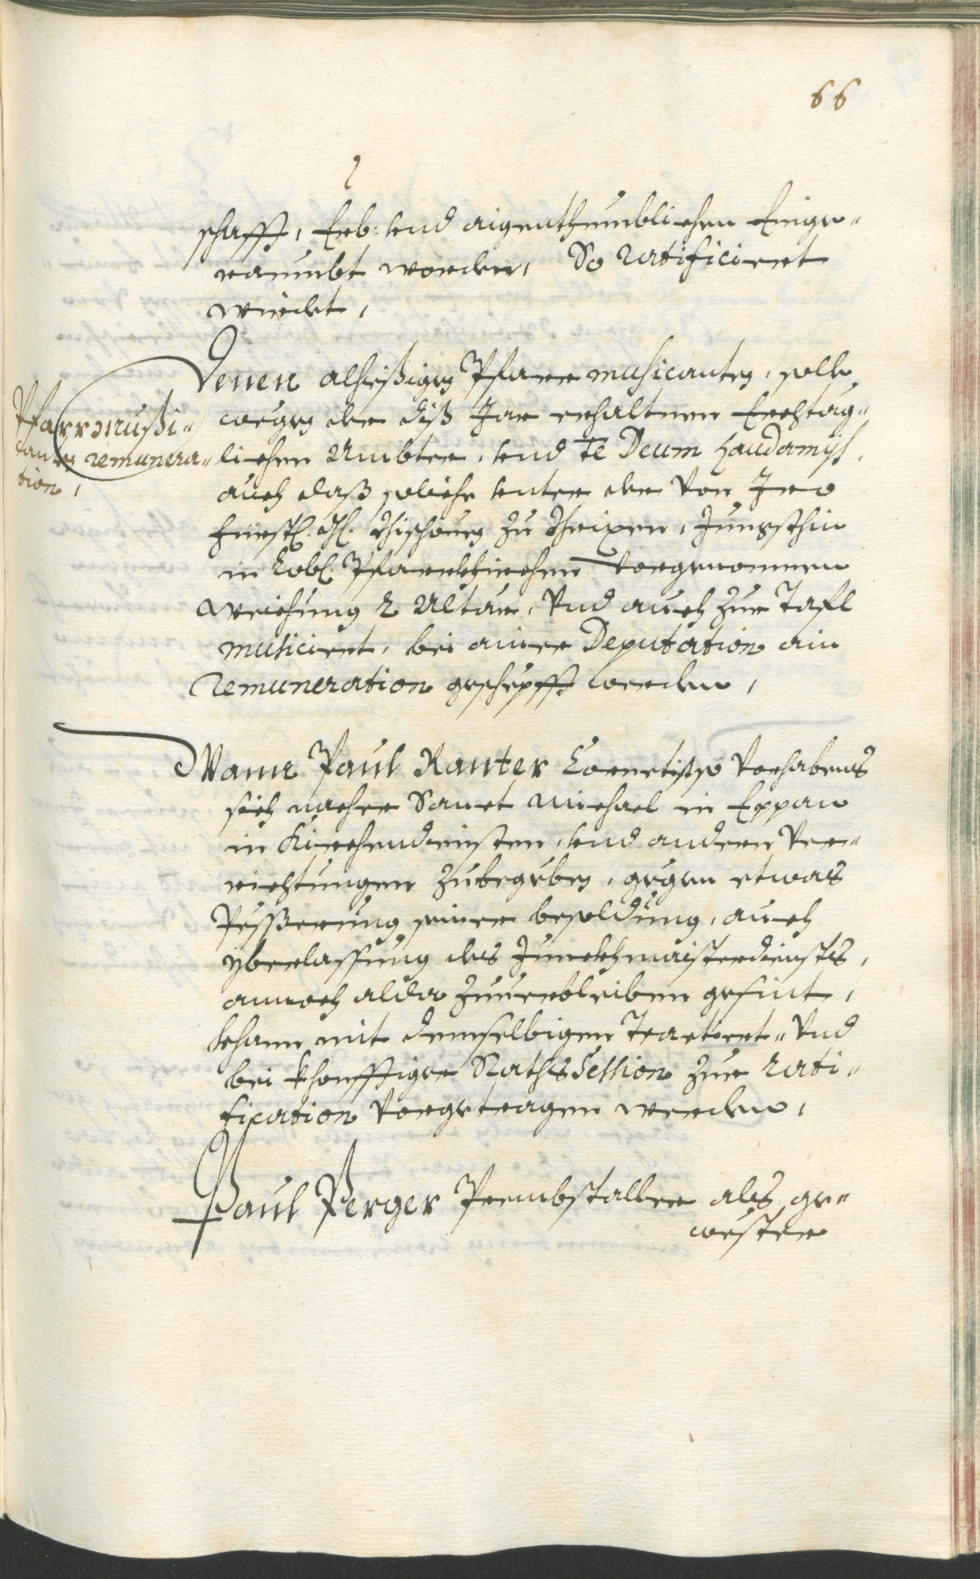 66
schafft, Erb: und aigenthumblichen Einge„
raumbt worden, So ratificiert
wirdet,
Pfarrmusi„
canten remunera„
tion,
Denen alhießigen Pfarrmusicanten, solle
wegen der diß Jar erhaltnen
lichen Ambter, und Te Deum Laudamus,
auch daß solche unter der von Iro
Fürstl. Bischouen zu Brixen, Jungsthin
in Lobl. Pfarrkhirchen vorgenommnen
Weichung 2 Altar, und auch zur Tafl
musiciert, bei ainer Deputation ain
Remuneration geschepfft werden,
Wann Paul Ranter Cornetist so vorhabens
sich nacher Sanct Michael in Eppan
in Kirchendiensten, und andern Ver„
richtungen zubegeben, gegen etwas
Pesserung seiner besoldung, auch
yberlassung des
annoch alda zuuerbleiben gesint,
khann mit demselbigen Tractiert„ und
bei khonfftiger Raths Session zur rati„
fication vorgetragen werden,
Paul Perger Prembstaller als ge„
wester